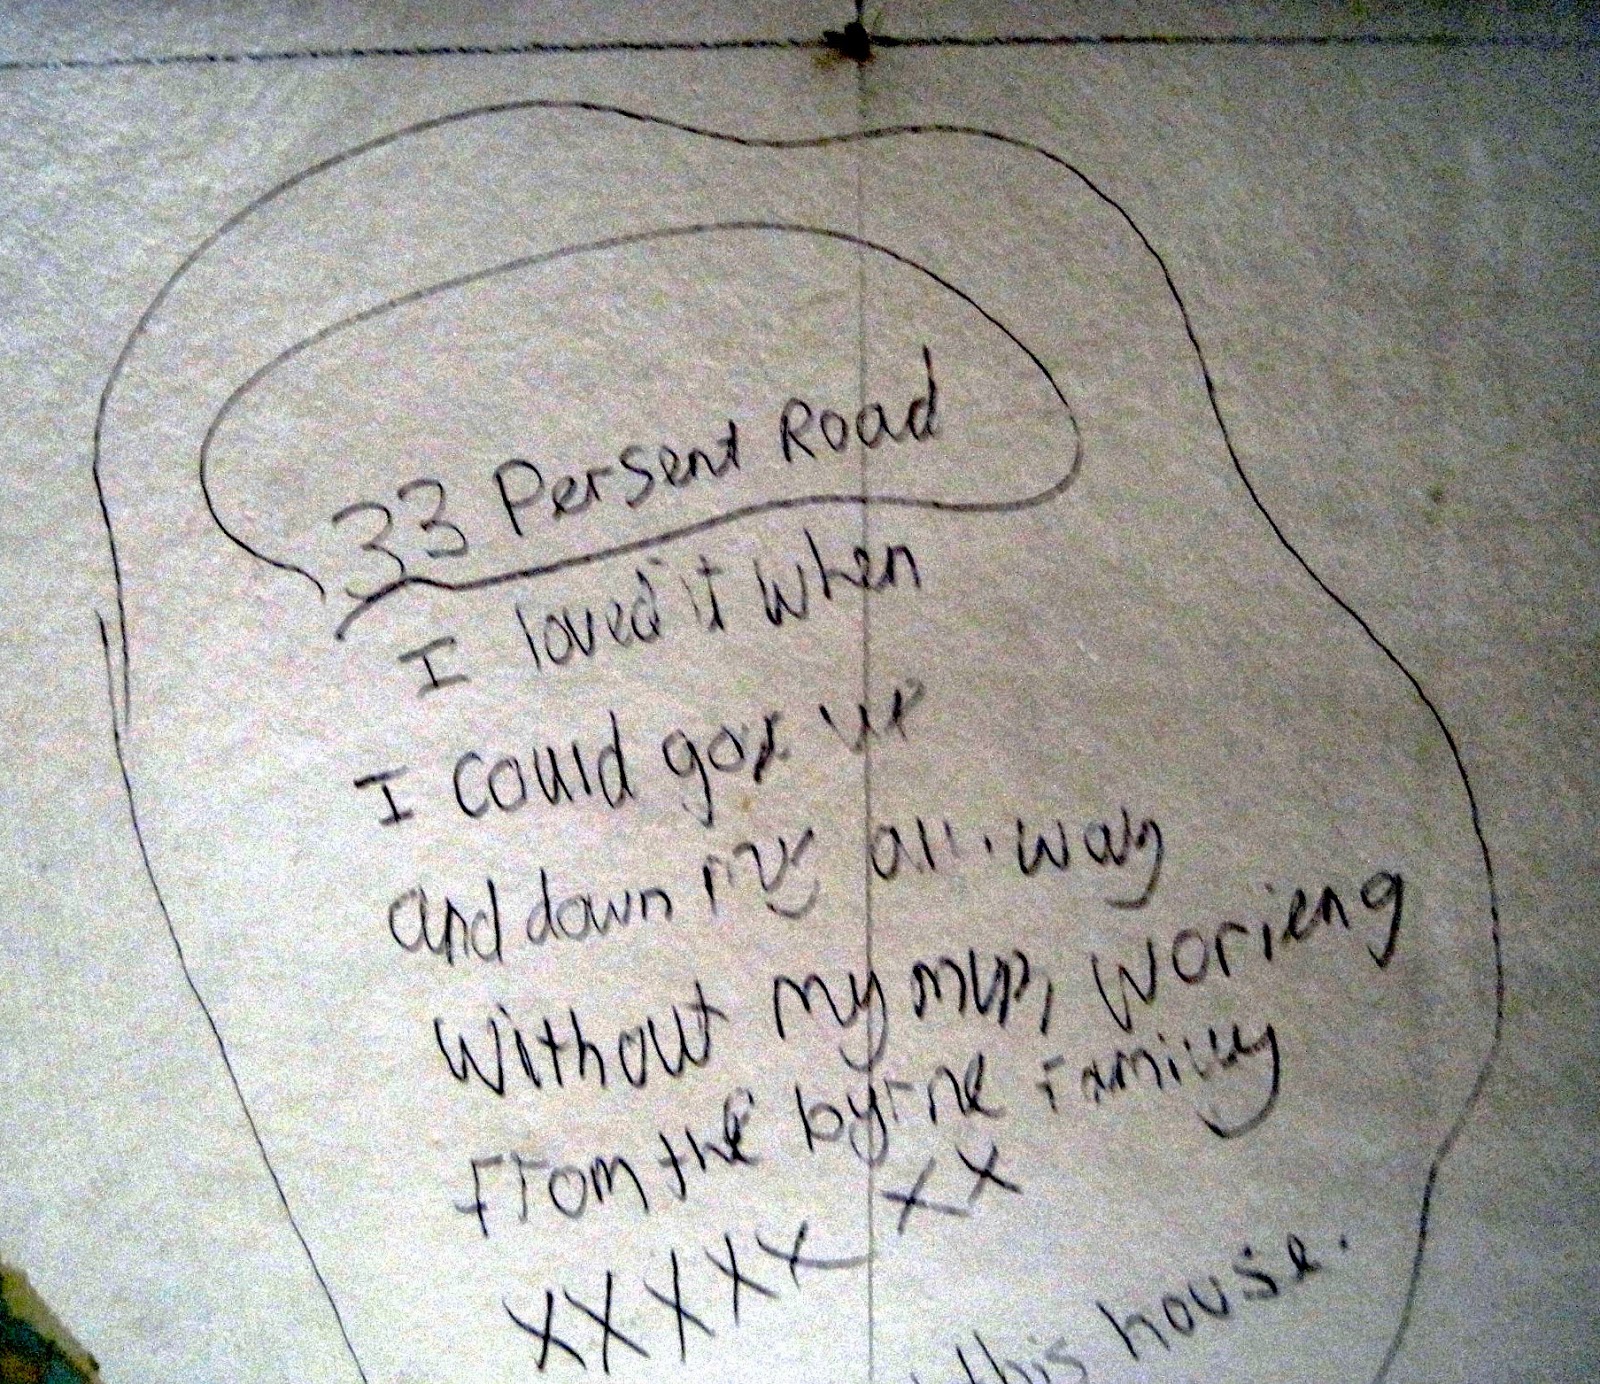 33 Persent Road
I loved it when
I could go up
and down my all.way
without my mup, worieng
From the byrne Family
xx
xxxxx
this house.